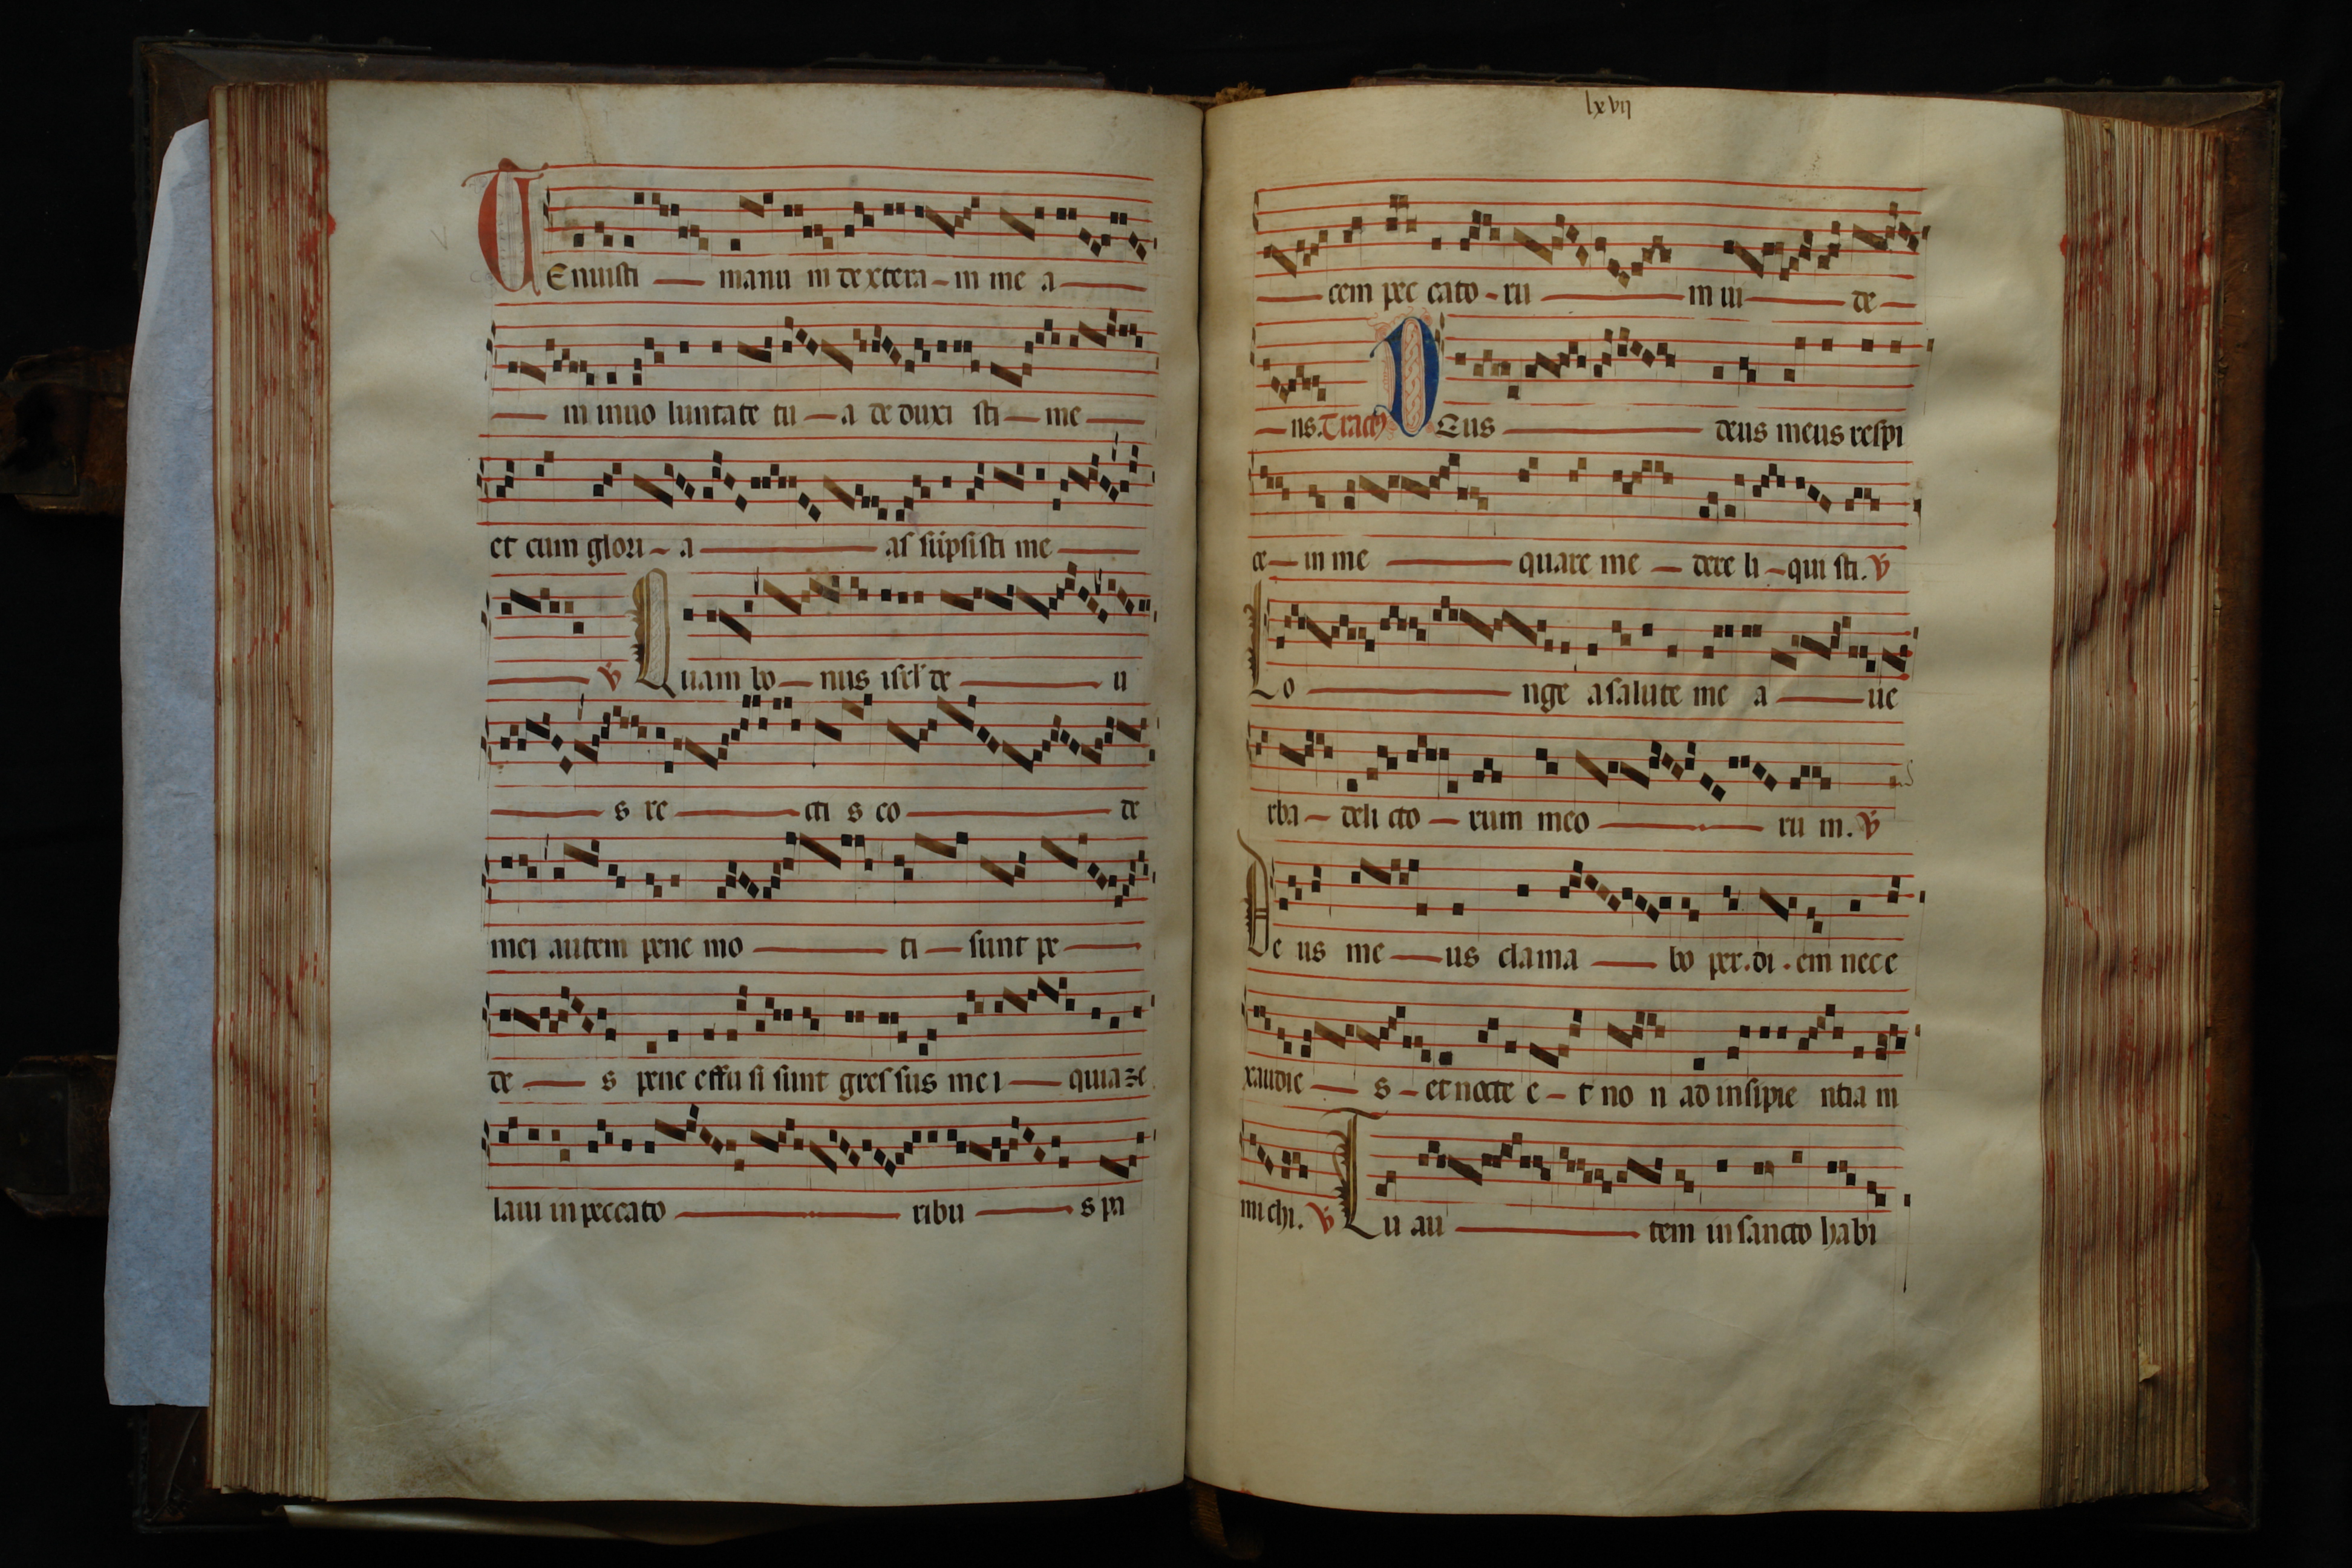 TEnuisti manu m dextera m me a
in inuo luntate tu a deduxi sti me
et cum glori a as sūpsisti me
℣ Quam bo nus isrl' de u
s re cti s co de
mei autem pene mo ti sunt pe
de s pene effu si sunt gressus mei quia ze
laui in peccato ribu s pa
lxvii
cem pec cato ru m ui de
ns. Tractꝰ DEus deus meus respi
ce in me quare me dere li qui sti. ℣
Lo nge a salute me a ue
rba deli cto rum meo ru m. ℣
De us me us clama bo per. di. em nec e
xaudie s et nocte e t no n ad insipie ntia m
michi. ℣ Tu au tem in sancto habi